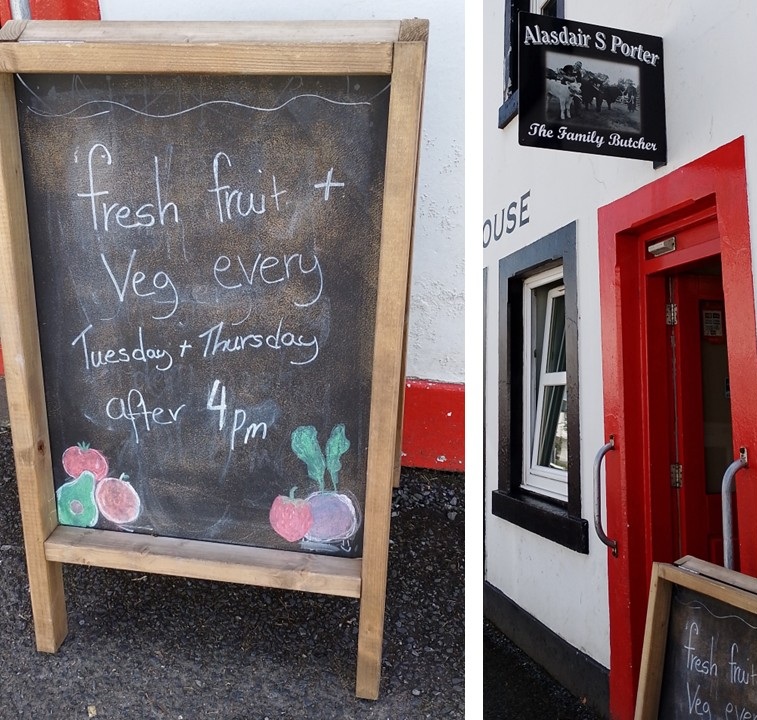 fresh fruit +
Veg every
Tuesday + Thursday
after 4pm
Alasdair S Porter
The Family Butcher
OUSE
fresh fruit
Veg ever